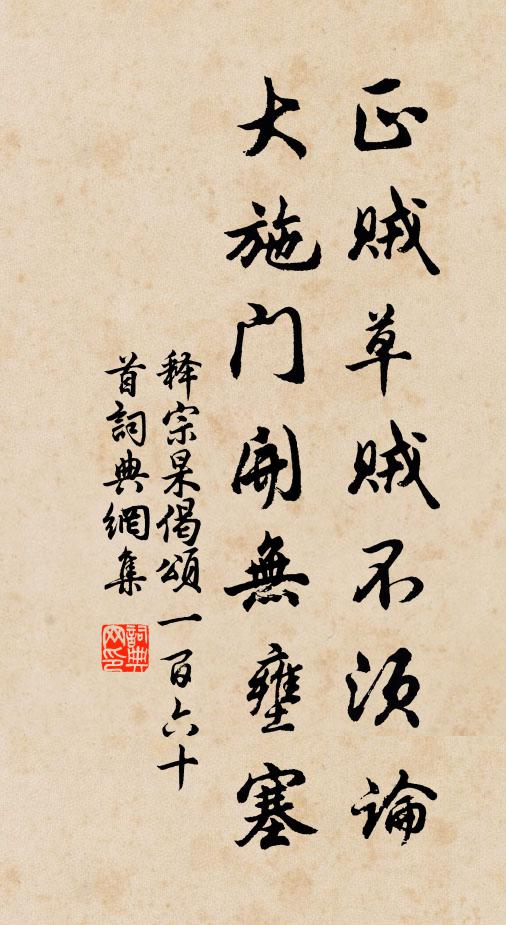 正贼草贼不须论
大施门開無壅塞
释宗杲偈頌一百六十
首詞典網集
詞典
网印